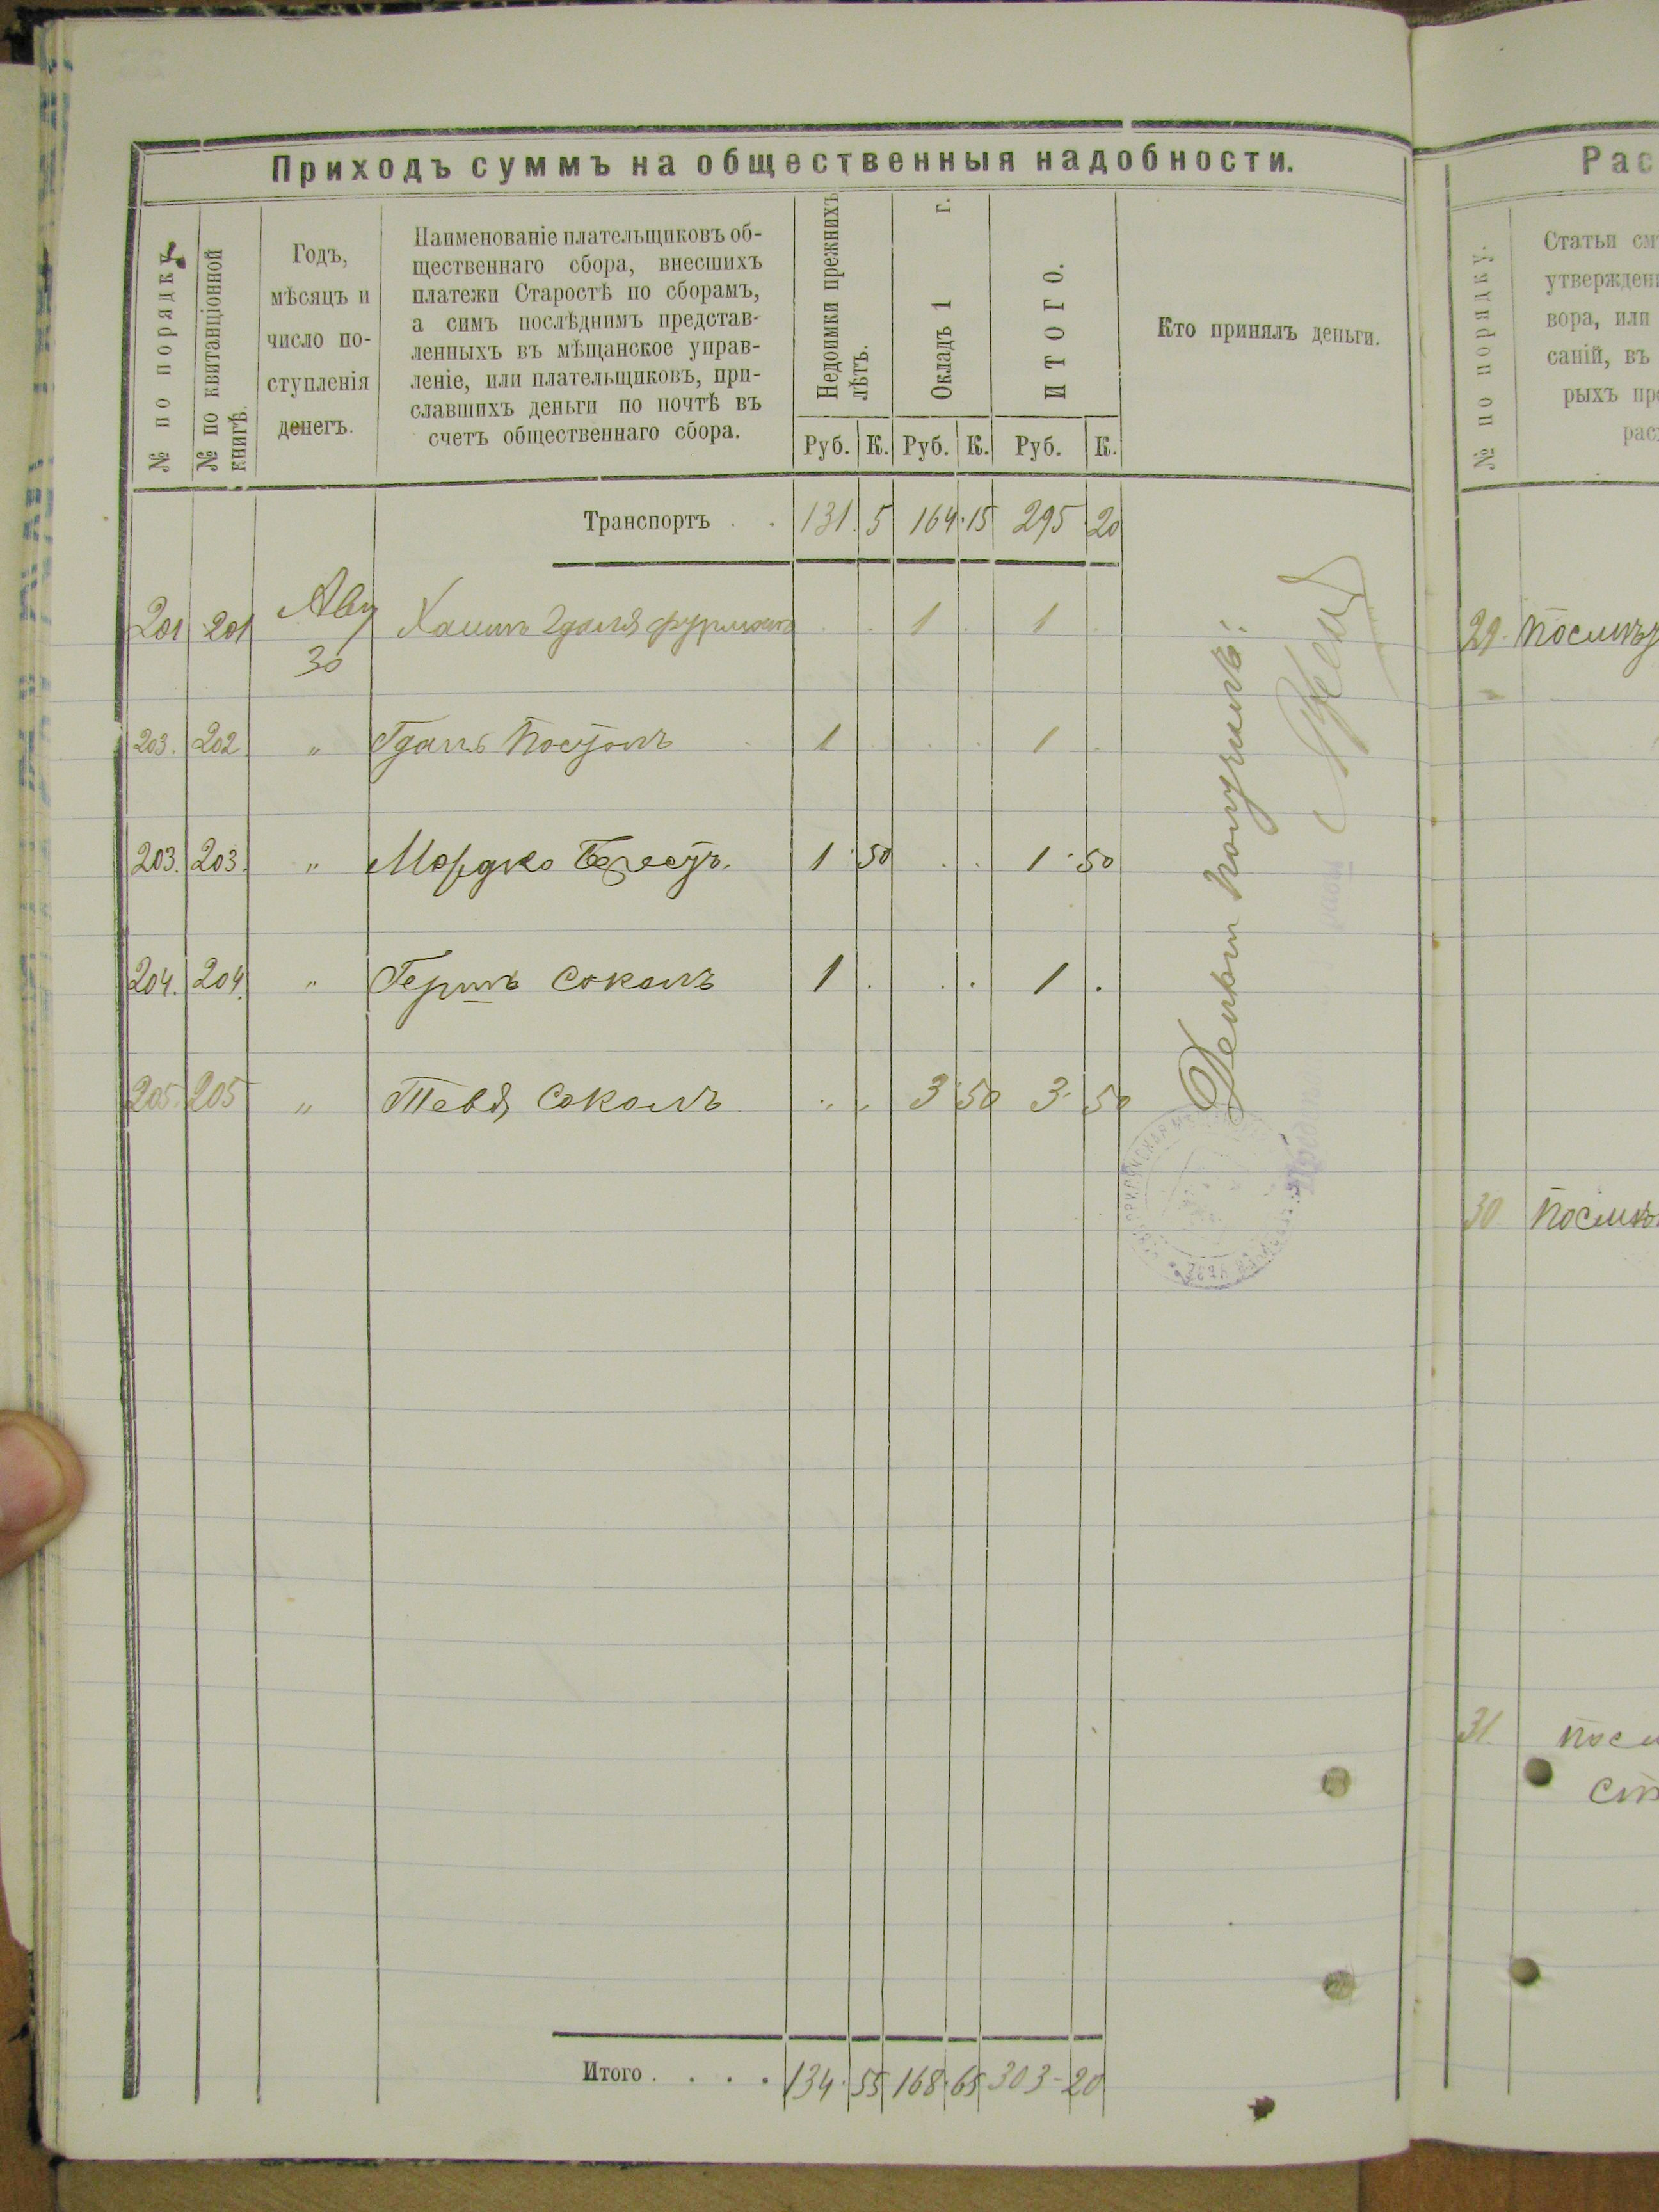 Приходъ суммъ на общественныя надобности.
№ по порядку.
№ по квитанціонной
книгѣ.
Годъ,
мѣсяцъ и
число по-
ступленія
денегъ.
Наименованіе плательщиковъ об-
щественнаго сбора, внесшихъ
платежи Старостѣ по сборамъ,
а симъ послѣднимъ представ-
ленныхъ въ мѣщанское управ-
леніе, или плательщиковъ, при-
славшихъ деньги по почтѣ въ
счетъ общественнаго сбора.
Недоимки прежнихъ
лѣтъ.
Окладъ 1 г.
ИТОГО.
Кто принялъ деньги.
Руб. К. Руб. К. Руб. К.
Транспортъ . . 131. 5 164. 15 295 20
201 201 Авг 30 1 1
203. 202 " 1 1
203. 203. " Мордко 1. 50 1. 50
204. 204. " Гершъ Соколъ 1 . . . 1 .
205. 205 " Тевя Соколъ 3. 50 3. 50
Деньги получилъ:
Итого . . . . 134. 55 168. 65 303-20
Рас
№ по порядку.
Статьи см
утвержден
вора, или
саній, въ
рыхъ пр
рас
29.
30.
31.